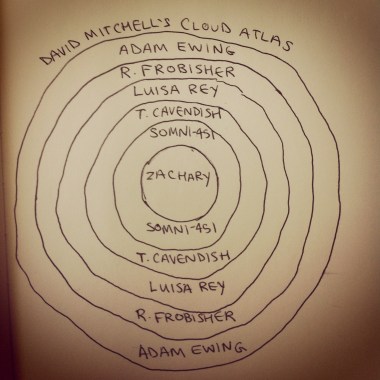 DAVID MITCHELL'S CLOUD ATLAS
ADAM EWING
R. FROBISHER
LUISA REY
T. CAVENDISH
SOMNI-451
ZACHARY
SOMNI-451
T. CAVENDISH
LUISA REY
R. FROBISHER
ADAM EWING